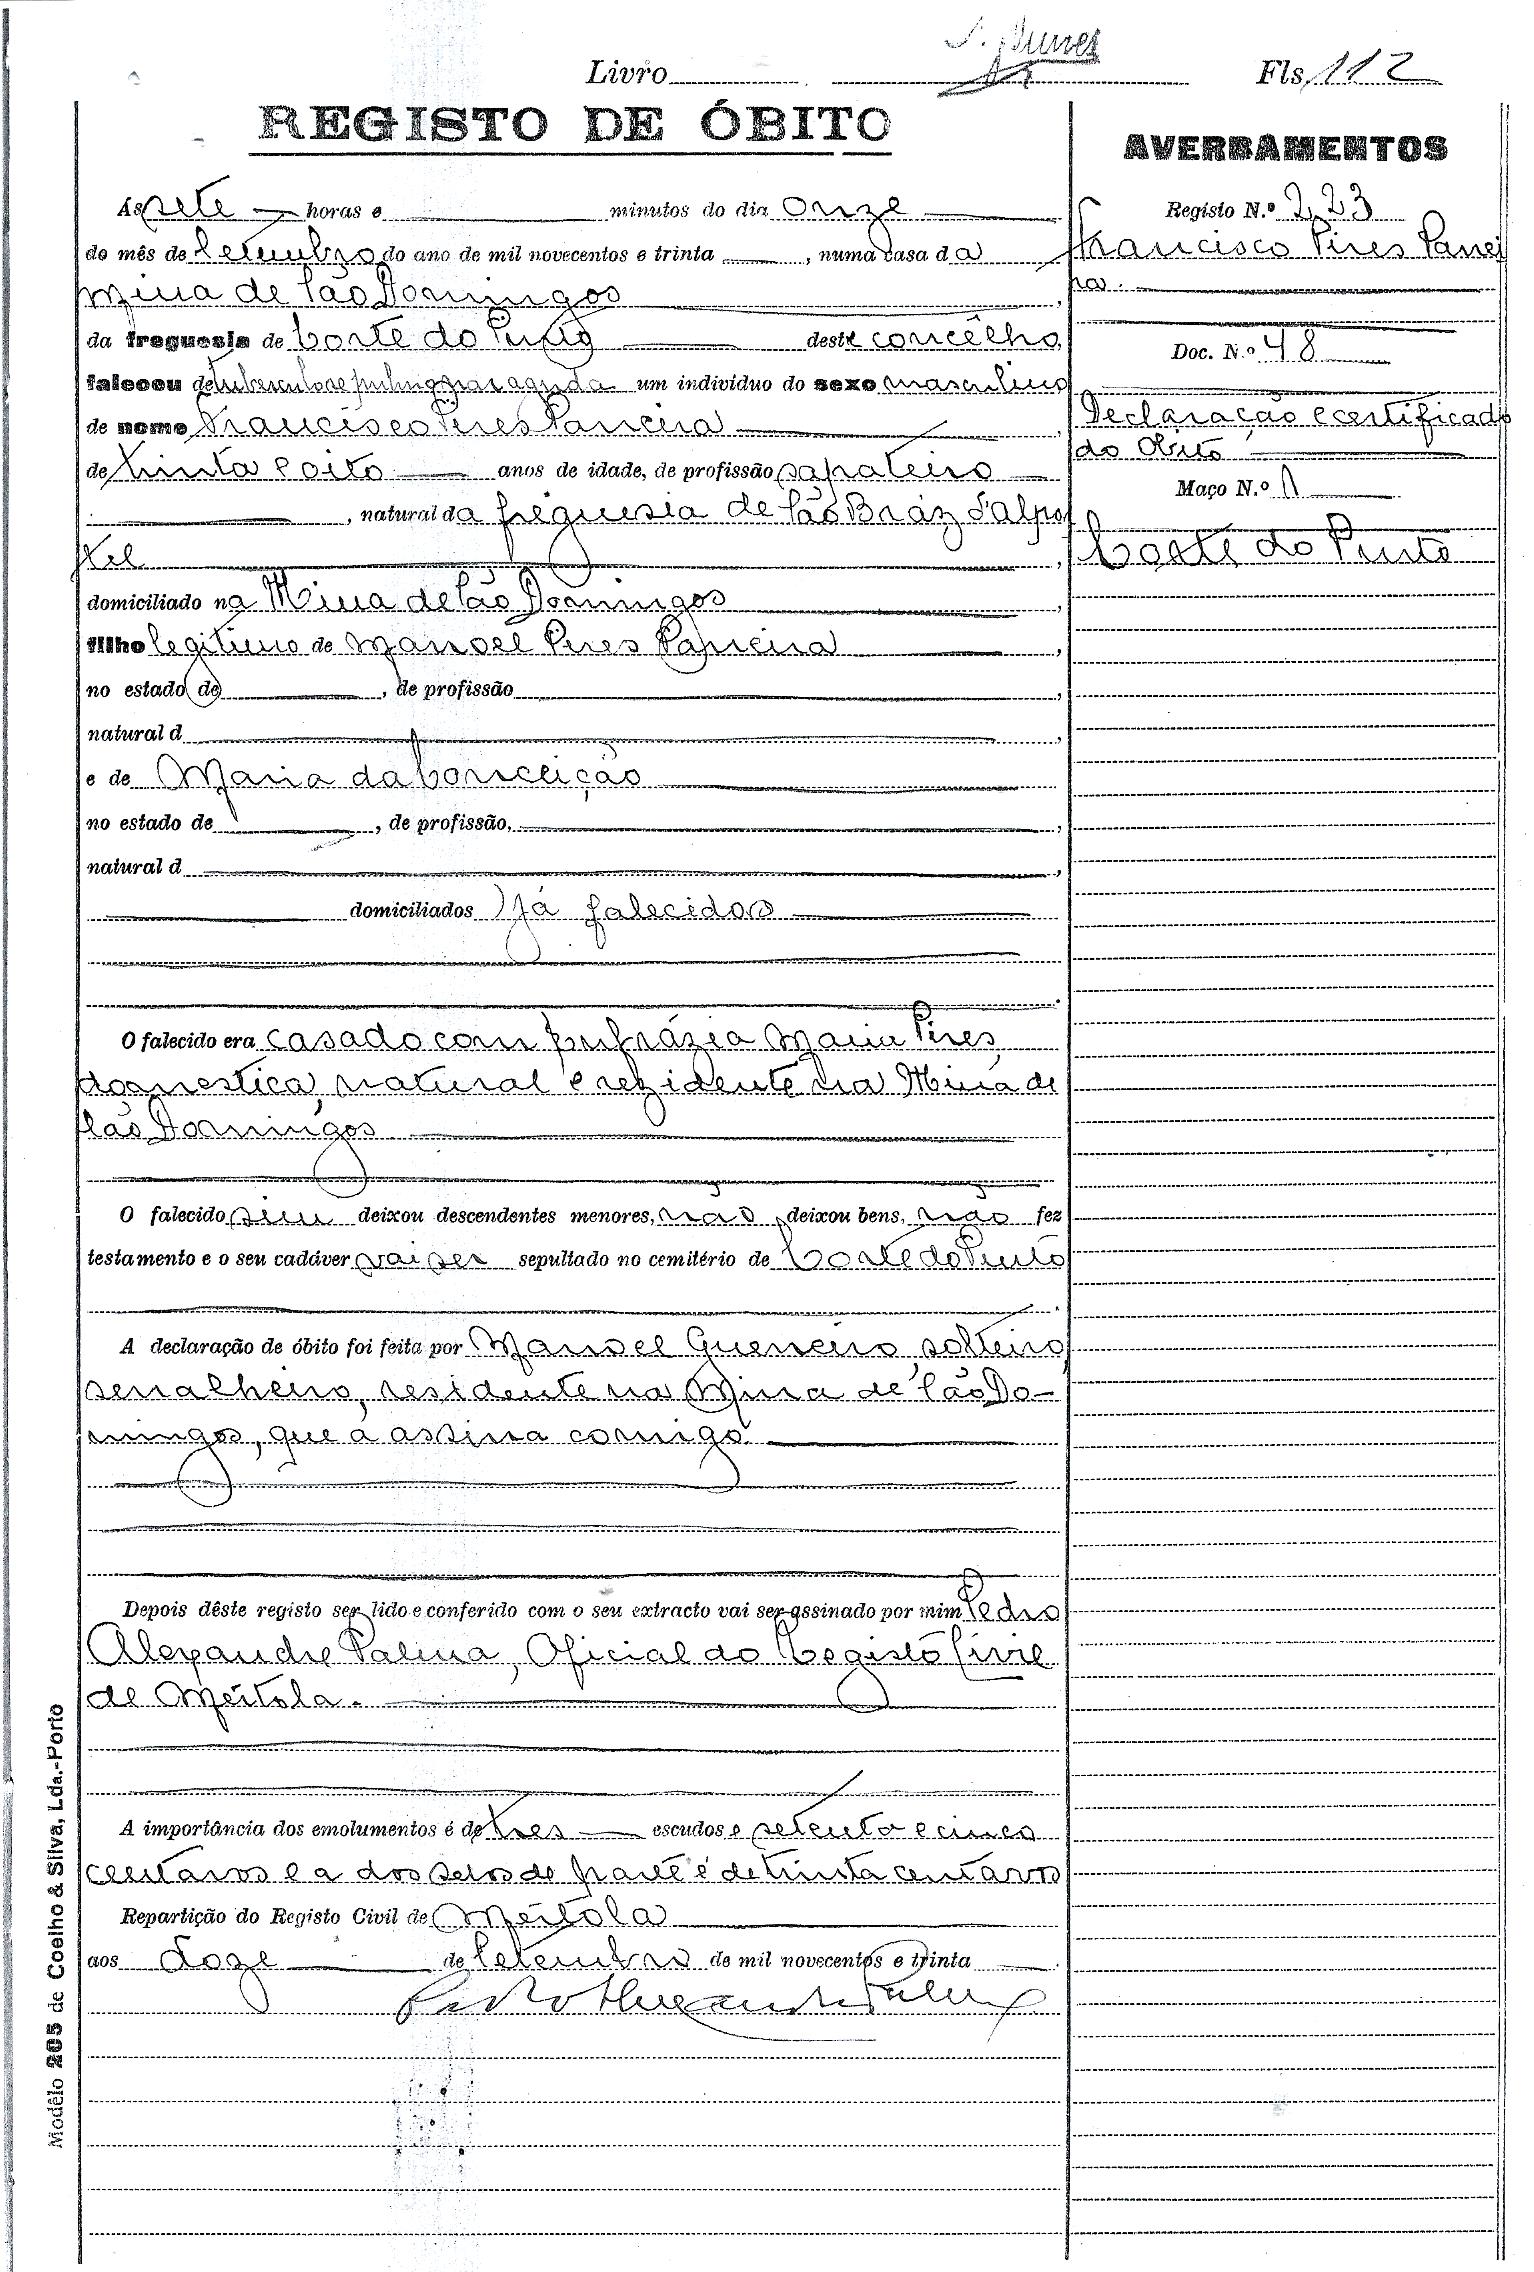 Livro Fls. 112
REGISTO DE ÓBITO
Ás sete horas e minutos do dia onze
do mês de Setembro do ano de mil novecentos e trinta , numa casa da
Mina de São Domingos ,
da freguesia de Corte do Pinto deste concêlho,
faleceu de tuberculose pulmonar aguda um individuo do sexo masculino
de nome Francisco Pires Paneira ,
de trinta e oito anos de idade, de profissão sapateiro
, natural da freguesia de São Braz d'Alpor
tel ,
domiciliado na Mina de São Domingos ,
filho legitimo de Manoel Pires Paneira ,
no estado de , de profissão ,
natural d ,
e de Maria da Conceição
no estado de , de profissão, ,
natural d ,
domiciliados já falecidos
.
O falecido era casado com Eufrázia Maria Pires,
domestica, natural e rezidente na Mina de
São Domingos
O falecido sim deixou descendentes menores, não deixou bens, não fez
testamento e o seu cadáver vai ser sepultado no cemitério de Corte do Pinto
.
A declaração de óbito foi feita por Manoel Guerreiro, solteiro,
serralheiro, residente na Mina de São Do-
mingos, que a assina comigo.
Depois dêste registo ser lido e conferido com o seu extracto vai ser assinado por mim Pedro
Alexandre Palma, Oficial do Registo Civil
de Mértola.
A importância dos emolumentos é de tres escudos e setenta e cinco
centavos e a dos selos de parte é de trinta centavos
Repartição do Registo Civil de Mértola
aos doze de Setembro de mil novecentos e trinta .
Pedro Alexandre Palma
AVERBAMENTOS
Registo N.º 223
Francisco Pires Panei
ra.
Doc. N.º 48
Declaração e certificado
do óbito
Maço N.º 1
Corte do Pinto
Modêlo 205 de Coelho & Silva, Lda.-Porto